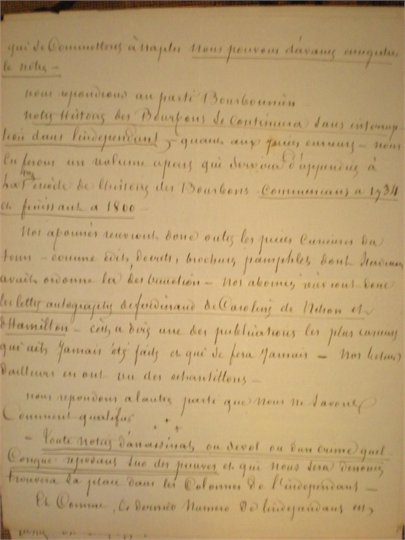 qui se Commettent à Naples nous pouvons d'avance enregistrer
le nôtre —
nous repondrons au parti Bourbonnien
notre histoire des Bourbons se continuera sans interrup
tion dans l'independant, — quant aux pieces curieuses — nous
en ferons un volume apart qui servira d'appendice à
la Periode de l'histoire des Bourbons Commencant a 1734
et finissant a 1800 —
Nos abonnés recevront donc toutes les pieces curieuses du
tems — comme édits, decrets, brochures pamphlets dont
avait ordonné la destruction — nos abonnés recevront donc
les lettres autographes de ferdinand de Caroline de Nelson et
d'Hamilton — c'est a dire une des publications les plus curieuses
qui ait Jamais été faite et qui se fera Jamais — Nos lecteurs
d'ailleurs en ont vu des echantillons —
nous repondons a l'autre parti que nous ne savons
Comment qualifier
— Toute notice d'assassinat, ou de vol ou d'un crime quel
Conque reposant sur des preuves et qui nous sera denoncé
trouvera sa place dans les Colonnes de l'independant —
Et Comme, le dernier Numero de l'independant est